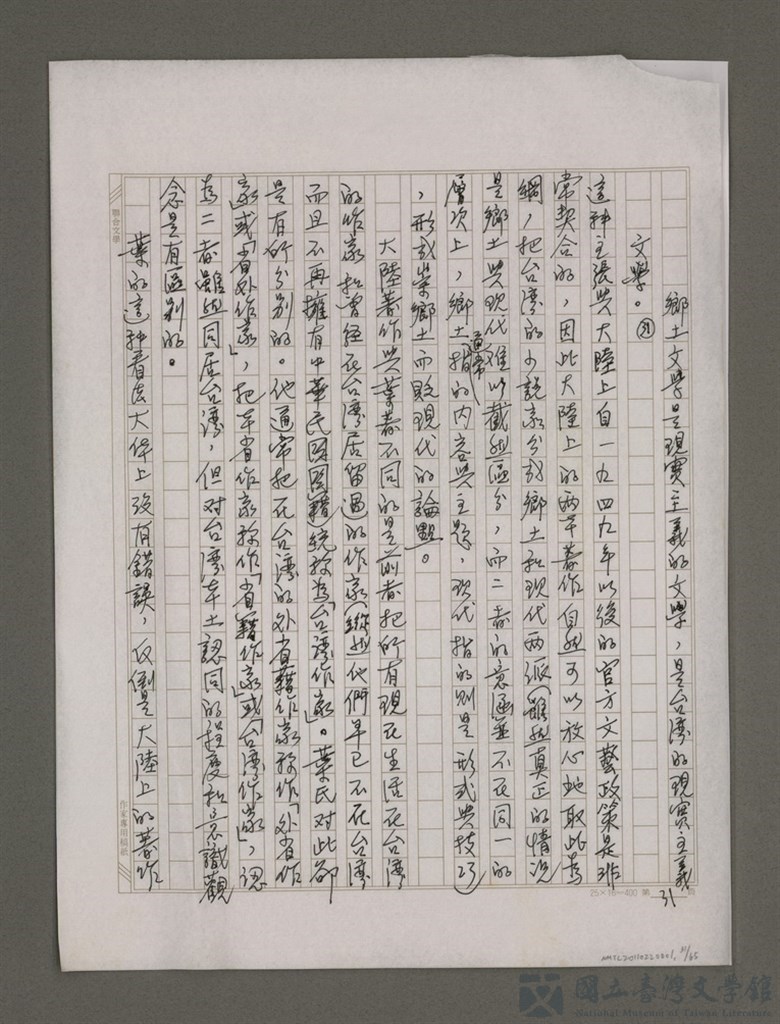 鄉土文學是現實主義的文學，是台灣的現實主義
文學。㉛
這种主張與大陸上自一九四九年以後的官方文藝政策是非
常契合的，因此大陸上的兩本著作自然可以放心地取此為
綱，把台湾的小說家分成鄉土和現代兩派（雖然真正的情況
是鄉土與現代难以截然區分，而二者的意涵並不在同一的
層次上，鄉土通常指的內容與主題，現代指的則是形式與技巧）
，形成崇鄉土而貶現代的論點。
大陸著作與葉著不同的是前者把所有現在生活在台灣
的作家和曾經在台灣居留過的作家（縱然他們早已不在台灣
而且不再擁有中華民國國籍）統称為「台湾作家」。葉氏對此卻
是有所分別的。他通常把在台灣的外省籍作家称作「外省作
家」或「省外作家」，把本省作家称作「省籍作家」或「台湾作家」，認
為二者雖然同居台湾，但对台湾本土認同的程度和意識觀
念是有區别的。
葉的這种看法大体上沒有錯誤，反倒是大陸上的著作
聯合文學
作家專用稿紙
25×16=400 第 31 頁
NMTL20110220301, 31/65
國立臺灣文學館
National Museum of Taiwan Literature